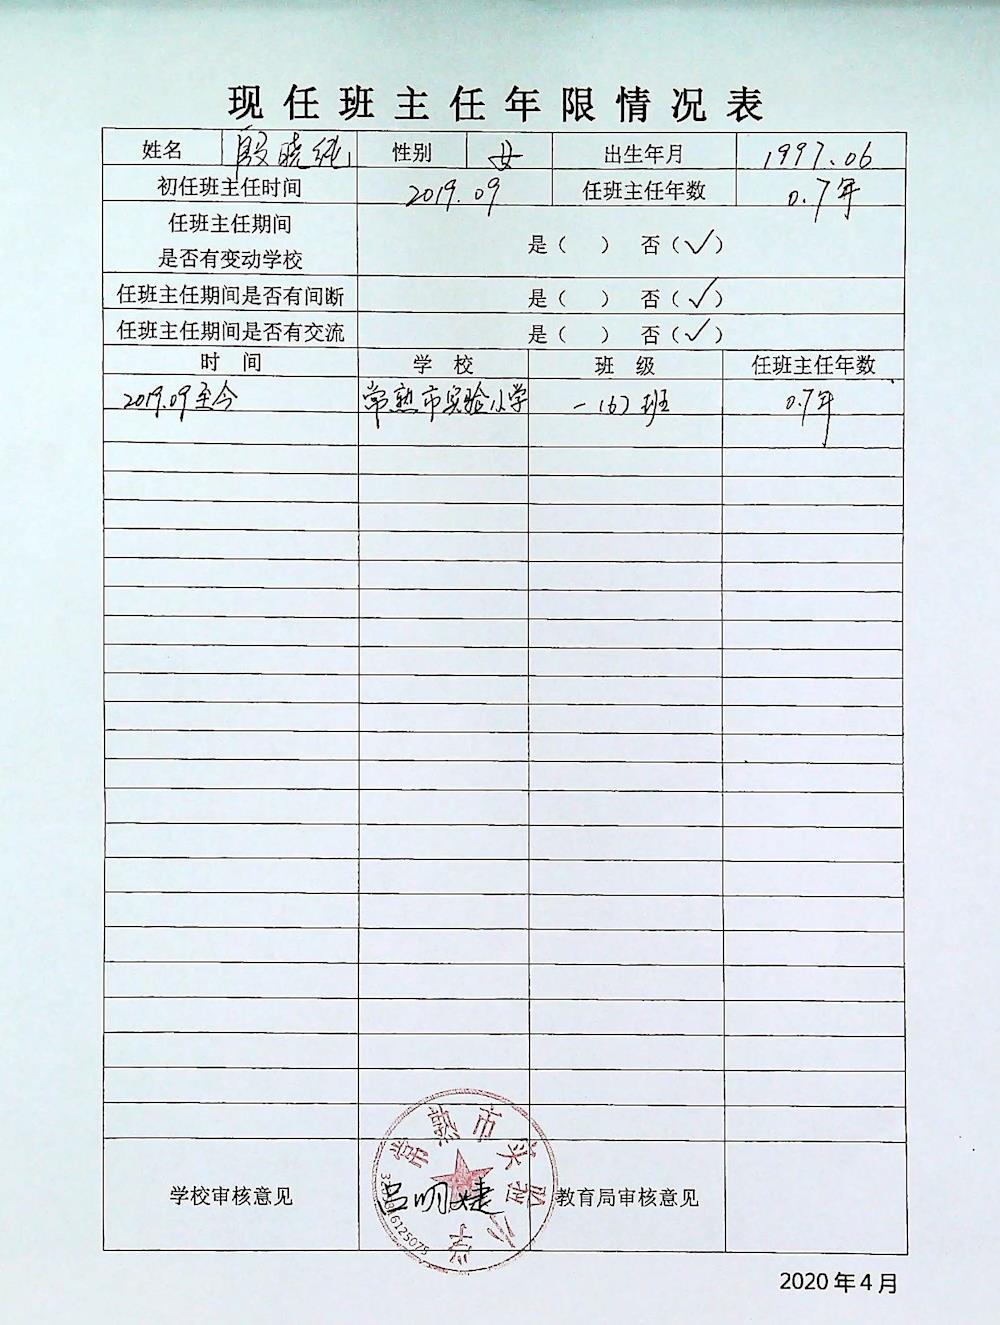 现任班主任年限情况表
姓名 殷晓纯 性别 女 出生年月 1997.06
初任班主任时间 2019.09 任班主任年数 0.7年
任班主任期间
是否有变动学校 是（ ） 否（√）
任班主任期间是否有间断 是（ ） 否（√）
任班主任期间是否有交流 是（ ） 否（√）
时 间 学 校 班 级 任班主任年数
2019.09至今 常熟市实验小学 一(6)班 0.7年
常熟市实验小学
学校审核意见 吕明婕 教育局审核意见
2020年4月